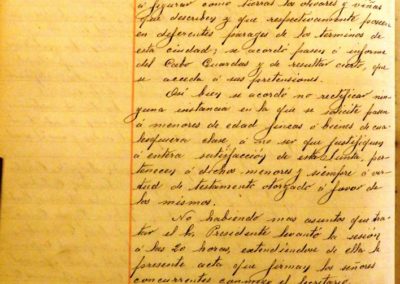 á figurar como tierras los olivares y viñas
que describen y que respectivamente poseen
en diferentes parages de los términos de
esta ciudad; se acordó pasen á informe
del Cabo Guardas y de resultar cierto, que
se acceda á sus pretensiones.
Así bien se acordó no rectificar nin-
guna instancia en la que se solicite pasen
á menores de edad fincas ó bienes de cua-
lesquiera clase, á no ser que justifiquen
á entera satisfacción de esta Junta, per-
tenecen á dichos menores y siempre á vir-
tud de testamento otorgado á favor de
los mismos.
No habiendo mas asuntos que tra-
tar el Sr. Presidente levantó la sesión
á las 20 horas, extendiéndose de ella la
presente acta que firman los señores
concurrentes conmigo el Secretario